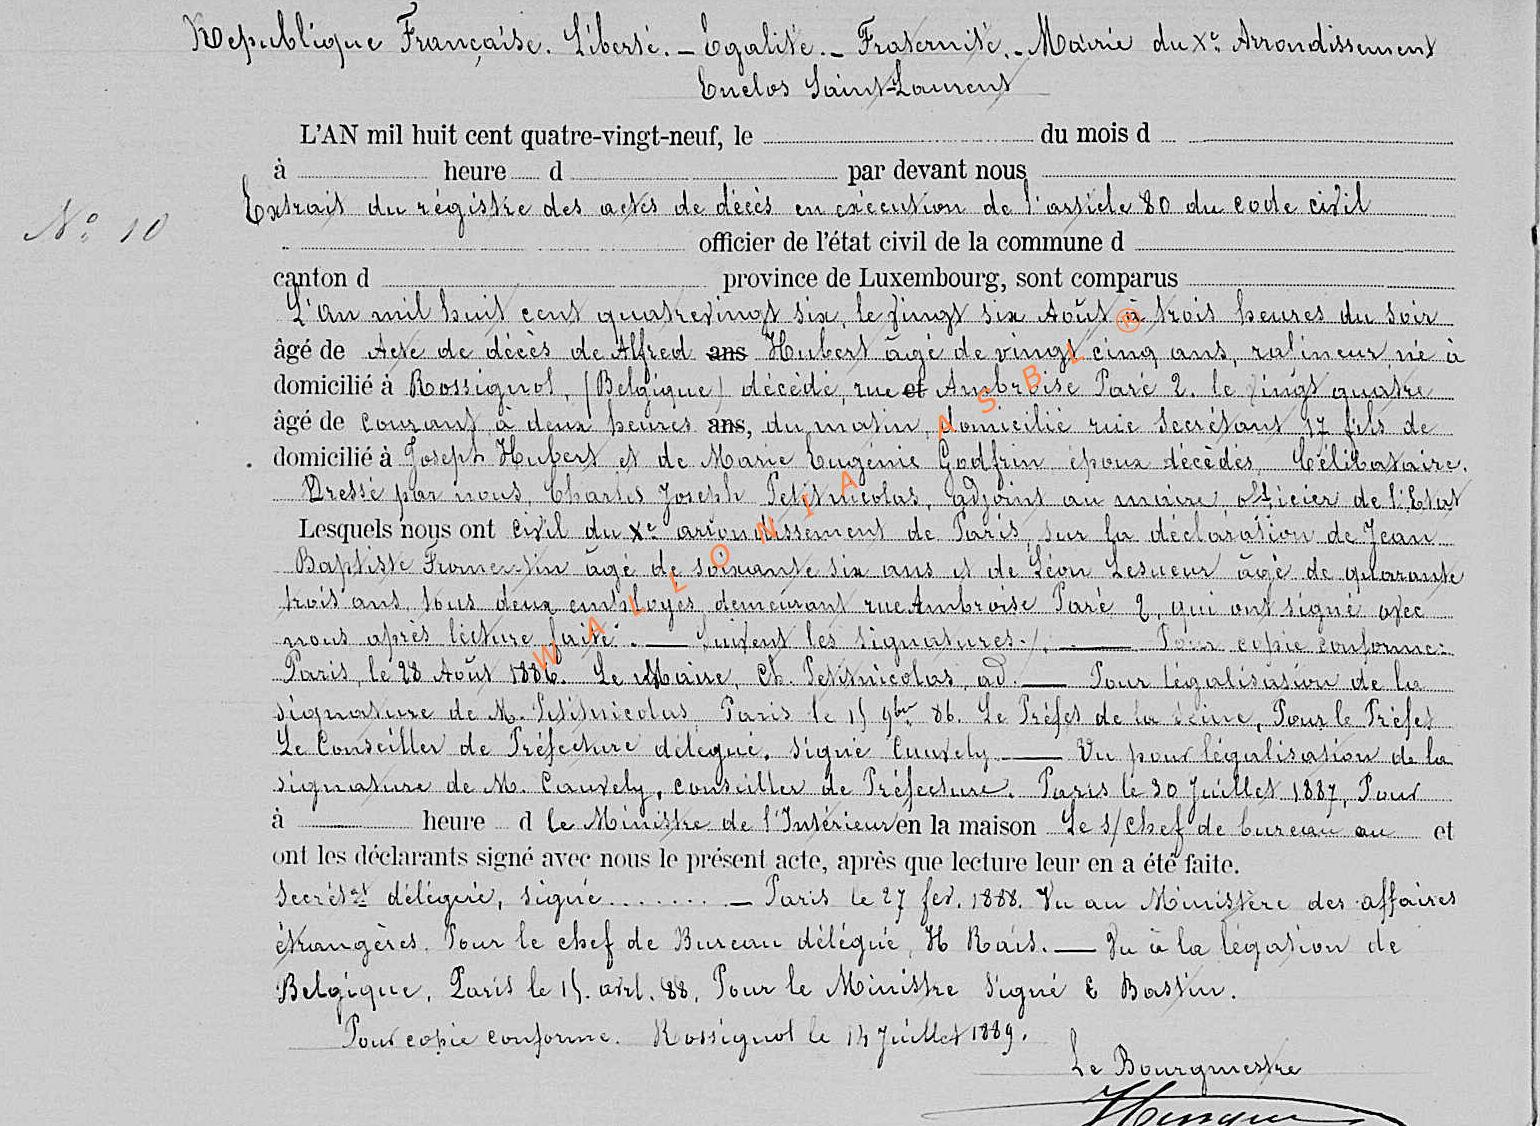 République Française. Liberté. – Egalité. – Fraternité. – Mairie du Xe Arrondissement
Enclos Saint-Laurent
L'AN mil huit cent quatre-vingt-neuf, le du mois d
à heure d par devant nous
N° 10
Extrait du régistre des actes de décès en exécution de l'article 80 du code civil
officier de l'état civil de la commune d
canton d province de Luxembourg, sont comparus
L'an mil huit cent quatrevingt six, le vingt six Août à trois heures du soir
âgé de Acte de décès de Alfred ans Hubert âgé de vingt cinq ans, rafineur, né à
domicilié à Rossignol, (Belgique) décédé, rue et Ambroise Paré 2. le vingt quatre
âgé de courant à deux heures ans, du matin, domicilié rue Secrétant 17 fils de
domicilié à Joseph Hubert et de Marie Eugénie Godfrin époux décèdés, Célibataire.
Dressé par nous, Charles Joseph Petitnicolas, adjoint au maire, officier de l'Etat
Lesquels nous ont civil du Xe arrondissement de Paris, sur la déclaration de Jean
Baptiste Fromentin âgé de soixante six ans et de Léon Lesueur âgé de quarante
trois ans, tous deux employés demeurant rue Ambroise Paré 2, qui ont signé avec
nous après lecture faite. — Suivent les signatures. — Pour copie conforme:
Paris, le 28 Août 1886. Le Maire, Ch. Petitnicolas, ad. — Pour légalisation de la
signature de M. Petitnicolas Paris le 15 9bre 86. Le Préfet de la Seine, Pour le Préfet
Le Conseiller de Préfecture délégué. signé Cauvely — Vu pour légalisation de la
signature de M. Cauvely, conseiller de Préfecture. Paris le 30 Juillet 1887, Pour
à heure d le Ministre de l'Intérieur en la maison Le s/chef de bureau au et
ont les déclarants signé avec nous le présent acte, après que lecture leur en a été faite.
Secrét. délégué, signé........ — Paris le 27 fev. 1888. Vu au Ministère des affaires
étrangères. Pour le chef de Bureau délégué, H Rais. — Vu à la légation de
Belgique, Paris le 15. avrl. 88, Pour le Ministre Signé E Bastin.
Pour copie conforme. Rossignol le 14 Juillet 1889.
Le Bourgmestre
WALLONIA ASBL ®